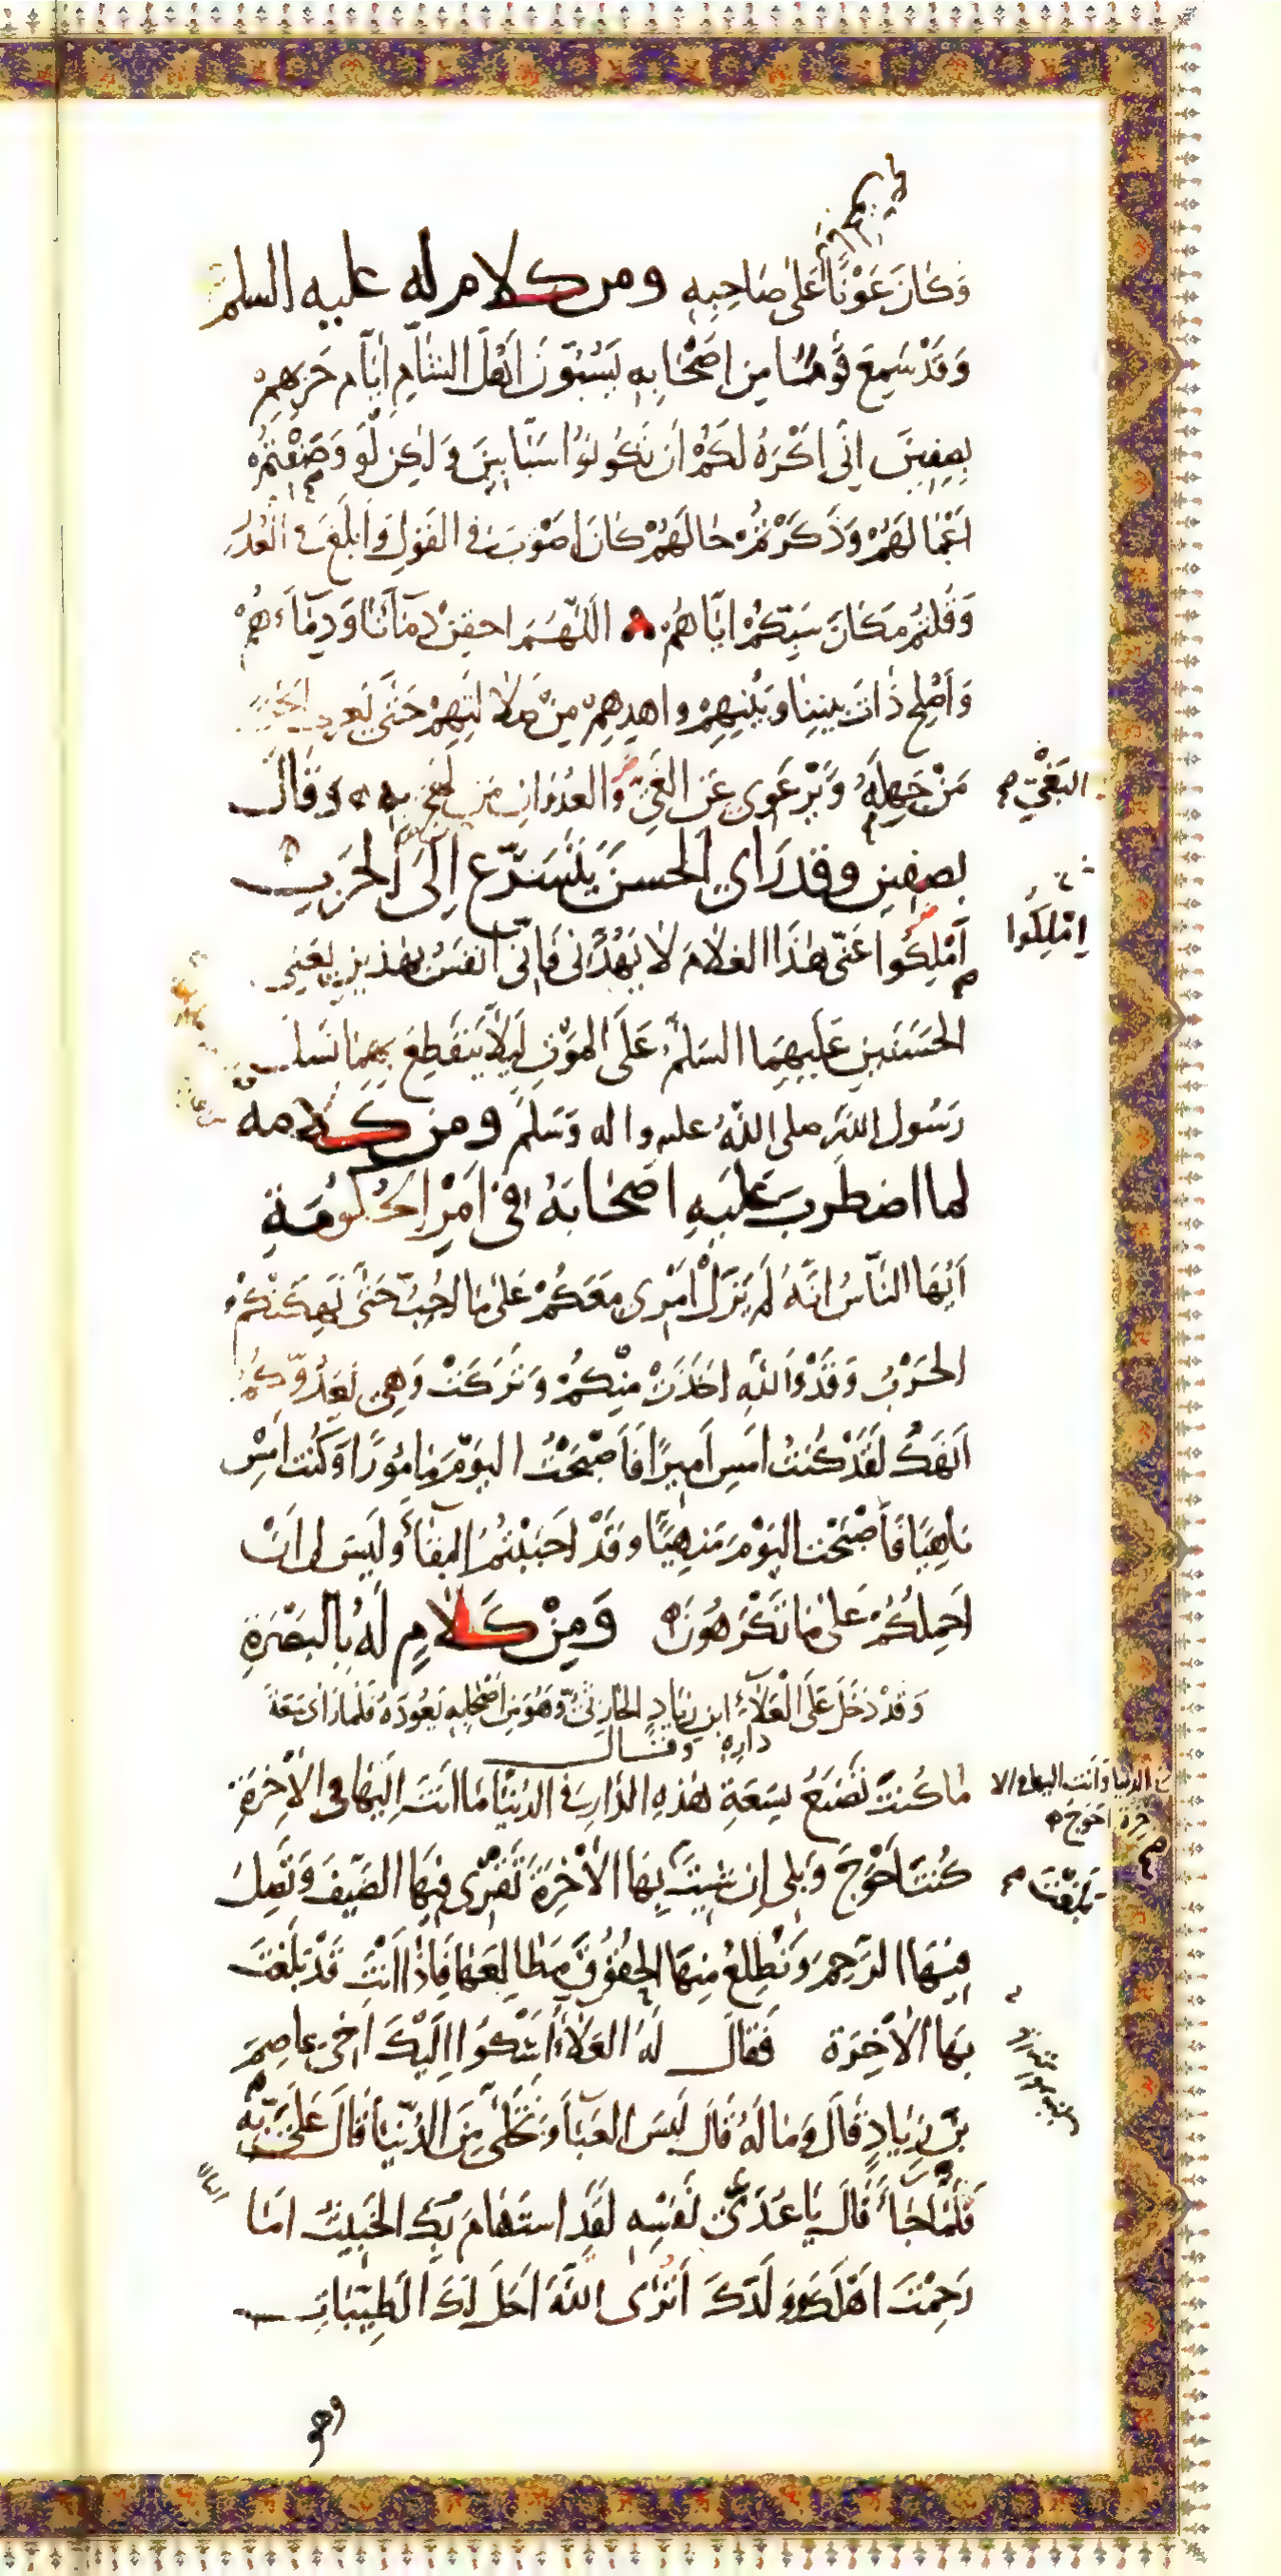 وَكَانَ عَوْنًا عَلَى صَاحِبِهِ ومن كلام له عليه السلم
وَقَدْ سَمِعَ قَوْمًا مِن اَصْحَابِهِ يَسُبُّونَ اَهْلَ الشَّامِ اَيَّام حَرْبِهِمْ
بِصِفِينَ اِنِّى اَكْرَهُ لَكُمْ اَن تَكُونُوا سَبَّابِينَ وَلٰكِن لَوْ وَصَفْتُمْ
اَعْمَالَهُمْ وَذَكَرْتُمْ حَالَهُمْ كَانَ اَصْوَبَ فى القَولِ وَاَبْلَغَ فى العُذْرِ
وَقُلْتُمْ مَكَانَ سَبِّكُمْ اِيَّاهُم اللّٰهُمَّ احقِنْ دِمَآئَنَا وَدِمَاءَهُمْ
وَاَصْلِحْ ذَاتَ بَيْنِنَا وَبَيْنِهِمْ وَاهدِهِمْ مِنْ ضَلَالَتِهِمْ حَتّٰى يَعرِفَ الحَقَّ
مَنْ جَهِلَهُ وَيَرْعَوِى عَن الغَىِّ وَالعُدْوَانِ مَن لَهِجَ بِهِ وَقَالَ
البَغْىِ
بصفين وقد رَاى الحسنَ يَتَسَرَّع اِلَى الحَربِ
اَمْلِكُوا عَنّى هٰذَا الغلَامَ لَا يَهُدَّنِى فَاِنّى اَنفَسُ بِهٰذَينِ يَعنِى
اِمْلِكُوا
الحَسَنَينِ عَلَيهِمَا السَلمُ عَلَى المَوْتِ لِيَلَّا يَنْقَطِعَ بِهِمَا نَسلُ
رَسُول اللّٰهِ صلى اللّٰهُ عليه واله وَسَلم ومن كلامه
لما اضطرب عَلَيهِ اَصحَابه فى اَمْرِ الحُكُومَةِ
اَيُّهَا النَّاسُ اِنَّهُ لَمْ يَزَلْ اَمْرِى مَعَكُمْ عَلٰى مَا اُحِبُّ حَتّٰى نَهِكَتْكُمُ
الحَرْبُ وَقَدْ وَاللّٰهِ اَخَذَتْ مِنْكُمْ وَتَرَكَتْ وَهِىَ لِعَدُوِّكُمْ
اَنْهَكُ لَقَدْ كُنتُ اَمسِ اَمِيرًا فَاَصْبَحْتُ اليَوْمَ مَامُورًا وَكُنتُ اَمسِ
نَاهِيًا فَاَصْبَحْتُ اليَوْمَ مَنهِيًّا وَقَدْ اَحبَبْتُمُ البَقَاءَ وَلَيسَ لِى اَنْ
اَحمِلَكُمْ عَلٰى مَا تَكْرَهُونَ وَمِنْ كَلَامٍ لَهُ بِالبَصْرَةِ
وَقَدْ دَخَلَ عَلَى الْعَلَآءِ ابنِ زِيَادٍ الحَارِثِىِّ وَهُوَ مِن اَصْحَابِهِ يَعُودُهُ فَلَمَّا رَاى سَعَةَ
دارِهِ وقال
مَا كُنتَ تَصْنَعُ بِسَعَةِ هٰذِهِ الدَّارِ فى الدُنْيَا مَا اَنتَ اِلَيهَا فى الاٰخِرَةِ
الدنيا وَاَنت اليها فى الا
خرة اَحوَج
كُنتَ اَحْوَجَ وَبَلٰى اِن شِئتَ بِهَا الاٰخِرَةَ تَقْرِى فِيهَا الضَيفَ وَتَصِلُ
بَلَغْتَ
فِيهَا الرَحِمَ وَتُطْلِعُ مِنهَا الحُقُوقَ مَطَالِعَهَا فَاِذًا اَنْتَ قَدْ بَلَغتَ
بِهَا الاٰخِرَة فَقَالَ لَهُ العَلَاءُ اَشْكُوا اِلَيْكَ اَخِى عاصِمَ
بنَ زِيَادٍ قَالَ وَمَا لَهُ قَالَ لَبِسَ العَبَآءَ وَتَخَلّٰى مِنَ الدُنْيَا قَالَ عَلَىَّ بِهِ
فَلَمَّا جَاءَ قَالَ يَا عُدَىَّ نَفْسِهِ لَقَدِ استَهَامَ بِكَ الخَبِيثُ اَمَا
رَحِمْتَ اَهْلَكَ وَوَلَدَكَ اَتَرَى اللّٰهَ اَحَلَّ لَكَ الطَيِّبَاتِ
وهو